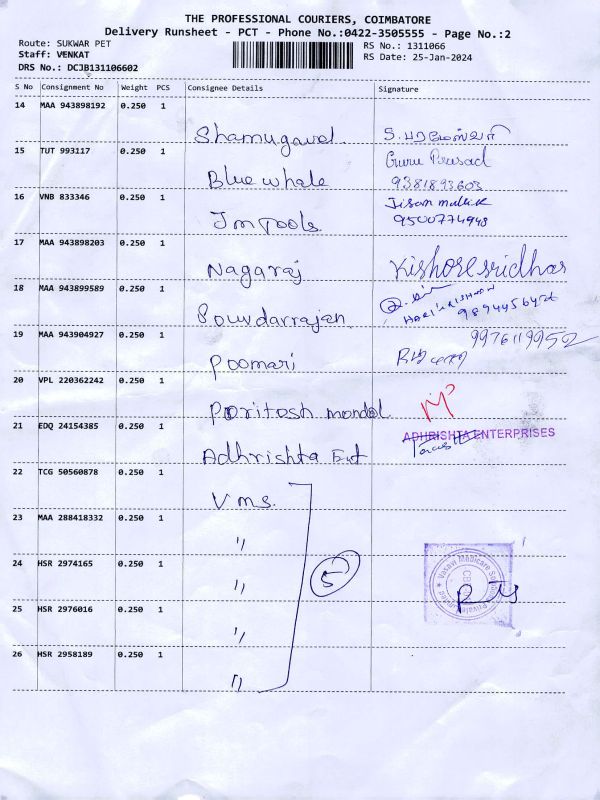 THE PROFESSIONAL COURIERS, COIMBATORE
Delivery Runsheet - PCT - Phone No.:0422-3505555 - Page No.:2
Route: SUKWAR PET
Staff: VENKAT
DRS No.: DCJB131106602
RS No.: 1311066
RS Date: 25-Jan-2024
S No Consignment No Weight PCS Consignee Details Signature
14 MAA 943898192 0.250 1
Shamugavel
15 TUT 993117 0.250 1
Guru Prasad
Blue whale 9381893603
16 VNB 833346 0.250 1
Jm Tools 9500774948
17 MAA 943898203 0.250 1
Nagaraj Kishoresridhar
18 MAA 943899589 0.250 1
HARIKRISHNAN
Souvdarrajan
19 MAA 943904927 0.250 1 9976119952
Poomari
20 VPL 220362242 0.250 1
Poritosh mondol
21 EDQ 24154385 0.250 1 ADHRISHTA ENTERPRISES
Adhrishta Ent
22 TCG 50560878 0.250 1
Vms.
23 MAA 288418332 0.250 1
"
24 HSR 2974165 0.250 1
" 5
25 HSR 2976016 0.250 1
"
26 HSR 2958189 0.250 1
"
Vasavi Medicare Private